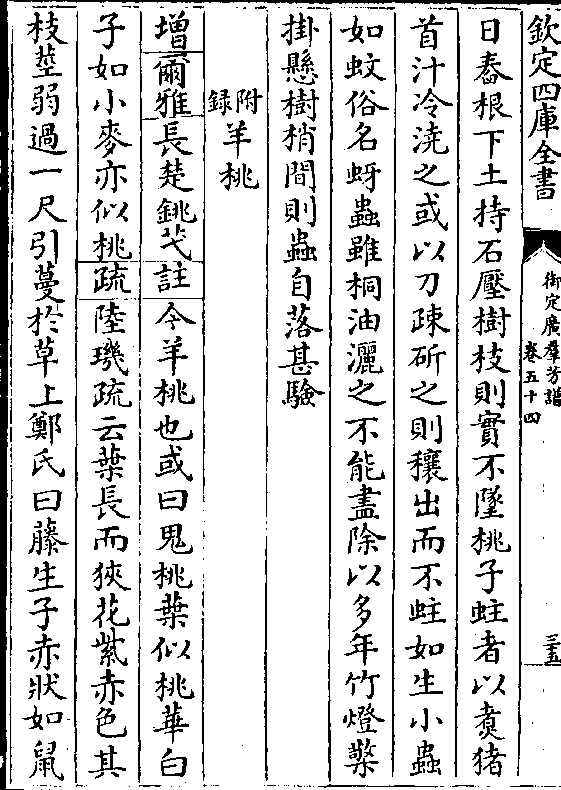 欽定四庫全書
御定廣羣芳譜
卷五十四
三五
日舂根下土持石壓樹枝則實不墜桃子蛀者以煑猪
首汁冷澆之或以刀疎斫之則穰出而不蛀如生小蟲
如蚊俗名蚜蟲雖桐油灑之不能盡除以多年竹燈檠
掛懸樹梢間則蟲自落甚驗
附錄羊桃
增爾雅長楚銚芅註今羊桃也或曰鬼桃葉似桃華白
子如小麥亦似桃疏陸璣疏云葉長而狹花紫赤色其
枝莖弱過一尺引蔓於草上鄭氏曰藤生子赤狀如鼠